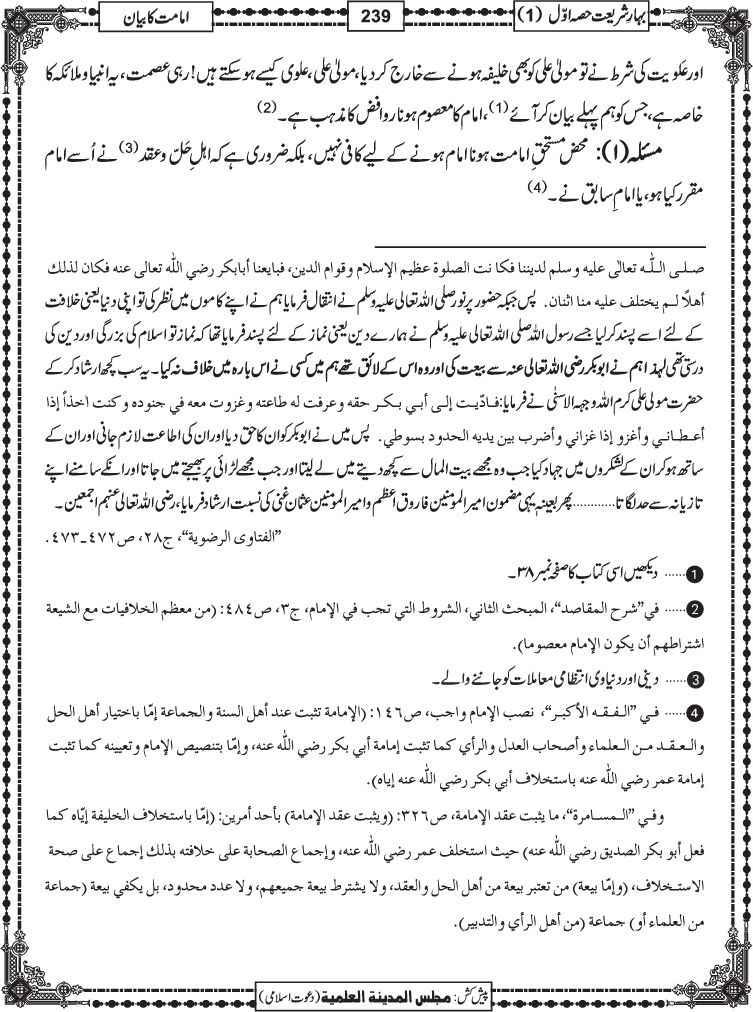 بہارِ شریعت حصہ اوّل (1)
239
امامت کا بیان
اور علویت کی شرط نے تو مولیٰ علی کو بھی خلیفہ ہونے سے خارج کر دیا، مولیٰ علی، علوی کیسے ہو سکتے ہیں! رہی عصمت، یہ انبیا و ملائکہ کا
خاصہ ہے، جس کو ہم پہلے بیان کر آئے (1)، امام کا معصوم ہونا روافض کا مذہب ہے۔ (2)
مسئلہ (۱): محض مستحقِ امامت ہونا امام ہونے کے لیے کافی نہیں، بلکہ ضروری ہے کہ اہلِ حَلّ و عقد (3) نے اُسے امام
مقرر کیا ہو، یا امامِ سابق نے۔ (4)
صلى اللّٰه تعالى عليه وسلم لديننا فكا نت الصلوة عظيم الإسلام وقوام الدين، فبايعنا أبابكر رضي اللّٰه تعالى عنه فكان لذلك
أهلًا لم يختلف عليه منا اثنان. پس جبکہ حضور پر نور صلی اللہ تعالیٰ علیہ وسلم نے انتقال فرمایا ہم نے اپنے کاموں میں نظر کی تو اپنی دنیا یعنی خلافت
کے لئے اسے پسند کر لیا جسے رسول اللہ صلی اللہ تعالیٰ علیہ وسلم نے ہمارے دین یعنی نماز کے لئے پسند فرمایا تھا کہ نماز تو اسلام کی بزرگی اور دین کی
درستی تھی لہٰذا ہم نے ابوبکر رضی اللہ تعالیٰ عنہ سے بیعت کی اور وہ اس کے لائق تھے ہم میں کسی نے اس بارہ میں خلاف نہ کیا۔ یہ سب کچھ ارشاد کر کے
حضرت مولیٰ علی کرم اللہ وجہہ الاسنیٰ نے فرمایا: فأديت إلى أبي بكر حقه وعرفت له طاعته وغزوت معه في جنوده وكنت آخذاً إذا
أعطاني وأغزو إذا غزاني وأضرب بين يديه الحدود بسوطي. پس میں نے ابوبکر کو ان کا حق دیا اور ان کی اطاعت لازم جانی اور ان کے
ساتھ ہو کر ان کے لشکروں میں جہاد کیا جب وہ مجھے بیت المال سے کچھ دیتے میں لے لیتا اور جب مجھے لڑائی پر بھیجتے میں جاتا اور انکے سامنے اپنے
تازیانہ سے حد لگاتا............ پھر بعینہٖ یہی مضمون امیر المؤمنین فاروق اعظم و امیر المؤمنین عثمان غنی کی نسبت ارشاد فرمایا، رضی اللہ تعالیٰ عنہم اجمعین۔
"الفتاوی الرضوية"، ج۲۸، ص۴۷۲-۴۷۳.
1 ...... دیکھیں اسی کتاب کا صفحہ نمبر ۳۸۔
2 ...... في "شرح المقاصد"، المبحث الثاني، الشروط التي تجب في الإمام، ج۳، ص٤٨٤: (من معظم الخلافيات مع الشيعة
اشتراطهم أن يكون الإمام معصوما).
3 ...... دینی اور دنیاوی انتظامی معاملات کو جاننے والے۔
4 ...... في "الفقه الأكبر"، نصب الإمام واجب، ص١٤٦: (الإمامة تثبت عند أهل السنة والجماعة إمّا باختيار أهل الحل
والعقد من العلماء وأصحاب العدل والرأي كما تثبت إمامة أبي بكر رضي اللّٰه عنه، وإمّا بتنصيص الإمام وتعيينه كما تثبت
إمامة عمر رضي اللّٰه عنه باستخلاف أبي بكر رضي اللّٰه عنه إياه).
وفي "المسامرة"، ما يثبت عقد الإمامة، ص٣٢٦: (ويثبت عقد الإمامة) بأحد أمرين: (إمّا باستخلاف الخليفة إيّاه كما
فعل أبو بكر الصديق رضي اللّٰه عنه) حيث استخلف عمر رضي اللّٰه عنه، وإجماع الصحابة على خلافته بذلك إجماع على صحة
الاستخلاف، (وإمّا بيعة) من تعتبر بيعة من أهل الحل والعقد، ولا يشترط بيعة جميعهم، ولا عدد محدود، بل يكفي بيعة (جماعة
من العلماء أو) جماعة (من أهل الرأي والتدبير).
پیش کش: مجلس المدينة العلمية (دعوت اسلامی)